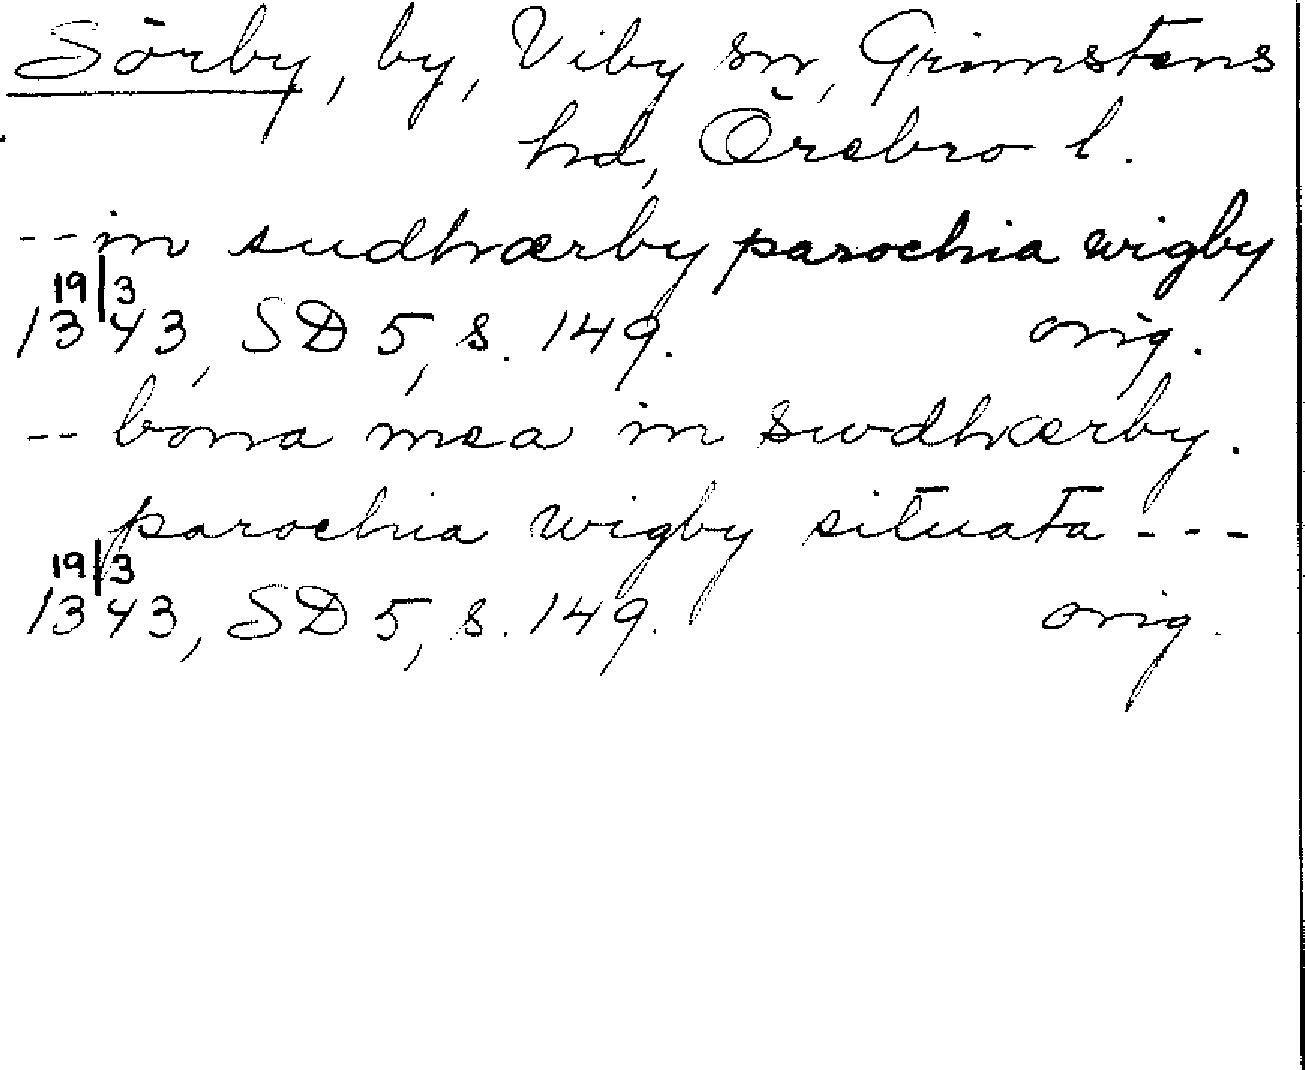 Sörby, by, Viby sn, Grimstens
hd, Örebro l.
-- in sudhærby parochia wigby
19/3
1343, SD 5, s. 149. orig.
-- bona mea in swdhærby.
parochia wigby situata ---
19/3
1343, SD 5, s. 149. orig.